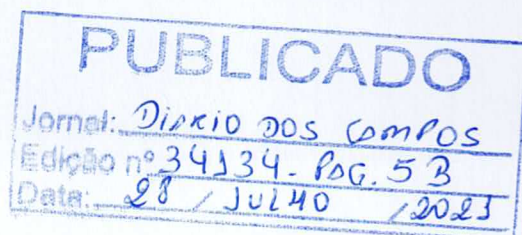 PUBLICADO
Jornal: DIARIO DOS CAMPOS
Edição nº 34134 - PAG. 5B
Data: 28 / JULHO / 2023